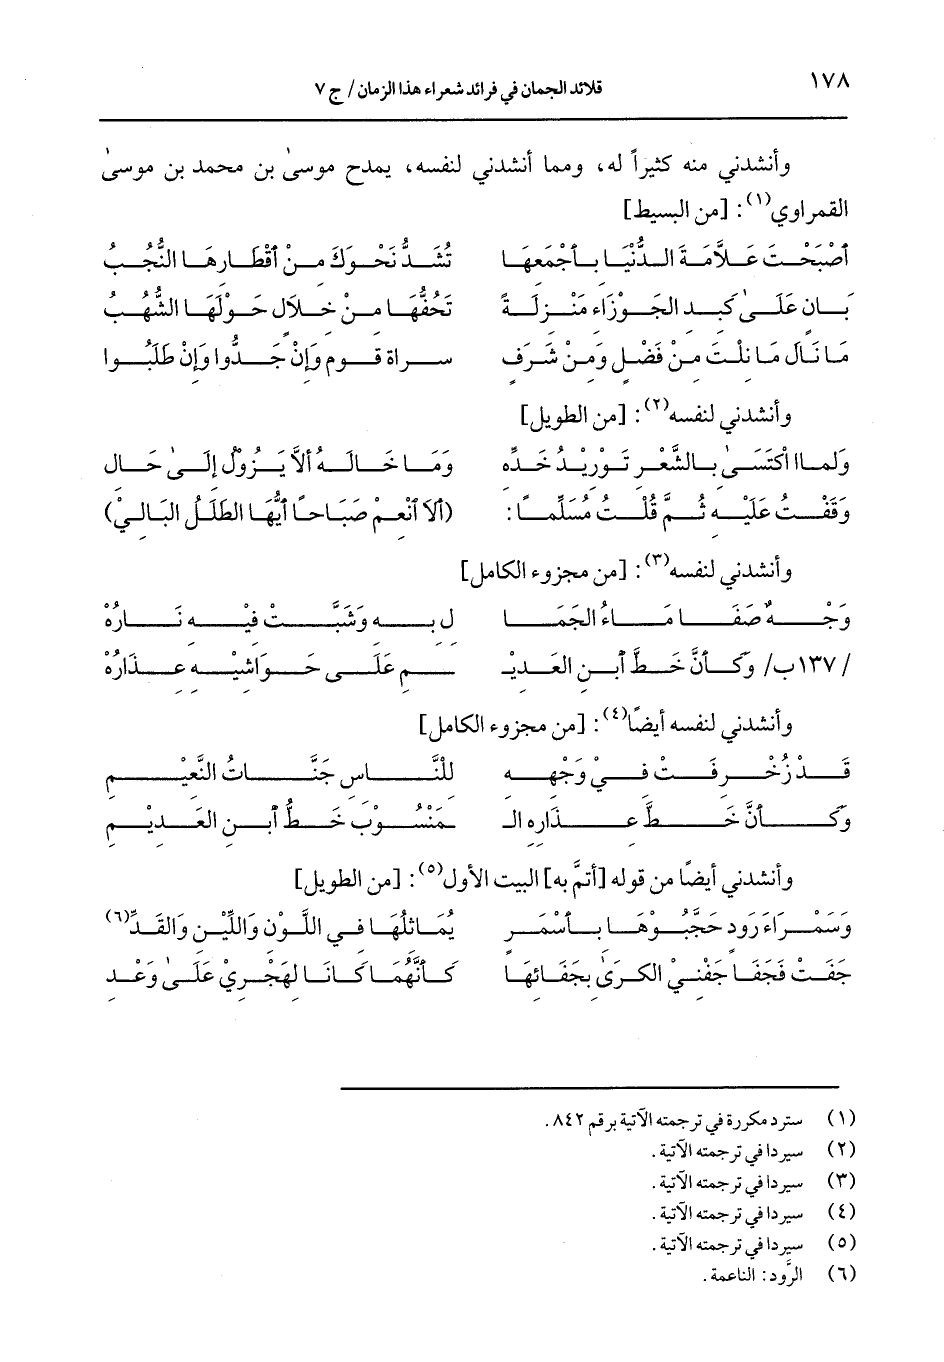 ١٧٨
قلائد الجمان في فرائد شعراء هذا الزمان/ ج ٧
وأنشدني منه كثيراً له، ومما أنشدني لنفسه، يمدح موسىٰ بن محمد بن موسىٰ
القمراوي(١): [من البسيط]
أصْبَحْتَ عَلاَّمَةَ الدُّنْيَا بأجْمَعهَا تُشَدُّ نَحْوَكَ منْ أقْطَارهَا النُّجُبُ
بَان عَلَىٰ كَبد الجَوْزَاء مَنْزلَةً تَحُفُّهَا منْ خلاَل حَوْلَهَا الشُّهُبُ
مَا نَالَ مَا نلْتَ منْ فَضْلٍ وَمنْ شَرَفٍ سراة قومٍ وإنْ جَدُّوا وإنْ طَلَبُوا
وأنشدني لنفسه(٢): [من الطويل]
وَلماا اكْتَسَىٰ بالشَّعْر تَوْريْدُ خَدِّه وَمَا خَالَهُ ألاَّ يَزُوْلُ إلَىٰ حَال
وَقَفْتُ عَلَيْه ثُمَّ قُلْتُ مُسَلِّماً: (ألاَ انْعمْ صَبَاحاً أيُّهَا الطَلَلُ البَاليْ)
وأنشدني لنفسه(٣): [من مجزوء الكامل]
وَجْهٌ صَفَا مَاءُ الجَمَا ل به وَشَبَّتْ فيْه نَارُهْ
/١٣٧ب/ وَكأنَّ خَطَّ ابن العَديْـ ـم عَلَى حَوَاشيْه عذَارُهْ
وأنشدني لنفسه أيضاً(٤): [من مجزوء الكامل]
قَدْ زُخْرفَتْ فيْ وَجْهه للنَّاس جَنَّاتُ النَّعيْم
وَكأنَّ خَطَّ عذَاره الـ ـمَنْسُوْبَ خَطُّ ابن العَديْم
وأنشدني أيضاً من قوله [أتمَّ به] البيت الأول(٥): [من الطويل]
وَسَمْرَاءَ رَود حَجَّبُوْهَا بأسْمَرٍ يُمَاثلُهَا في اللَّوْن وَاللِّيْن وَالقَدِّ(٦)
جَفَتْ فَجَفَا جَفْنيْ الكَرَىٰ بجَفَائهَا كَأنَّهُمَا كَانَا لهَجْريْ عَلَىٰ وَعْد
(١) سترد مكررة في ترجمته الآتية برقم ٨٤٢.
(٢) سيردا في ترجمته الآتية.
(٣) سيردا في ترجمته الآتية.
(٤) سيردا في ترجمته الآتية.
(٥) سيردا في ترجمته الآتية.
(٦) الرَّود: الناعمة.